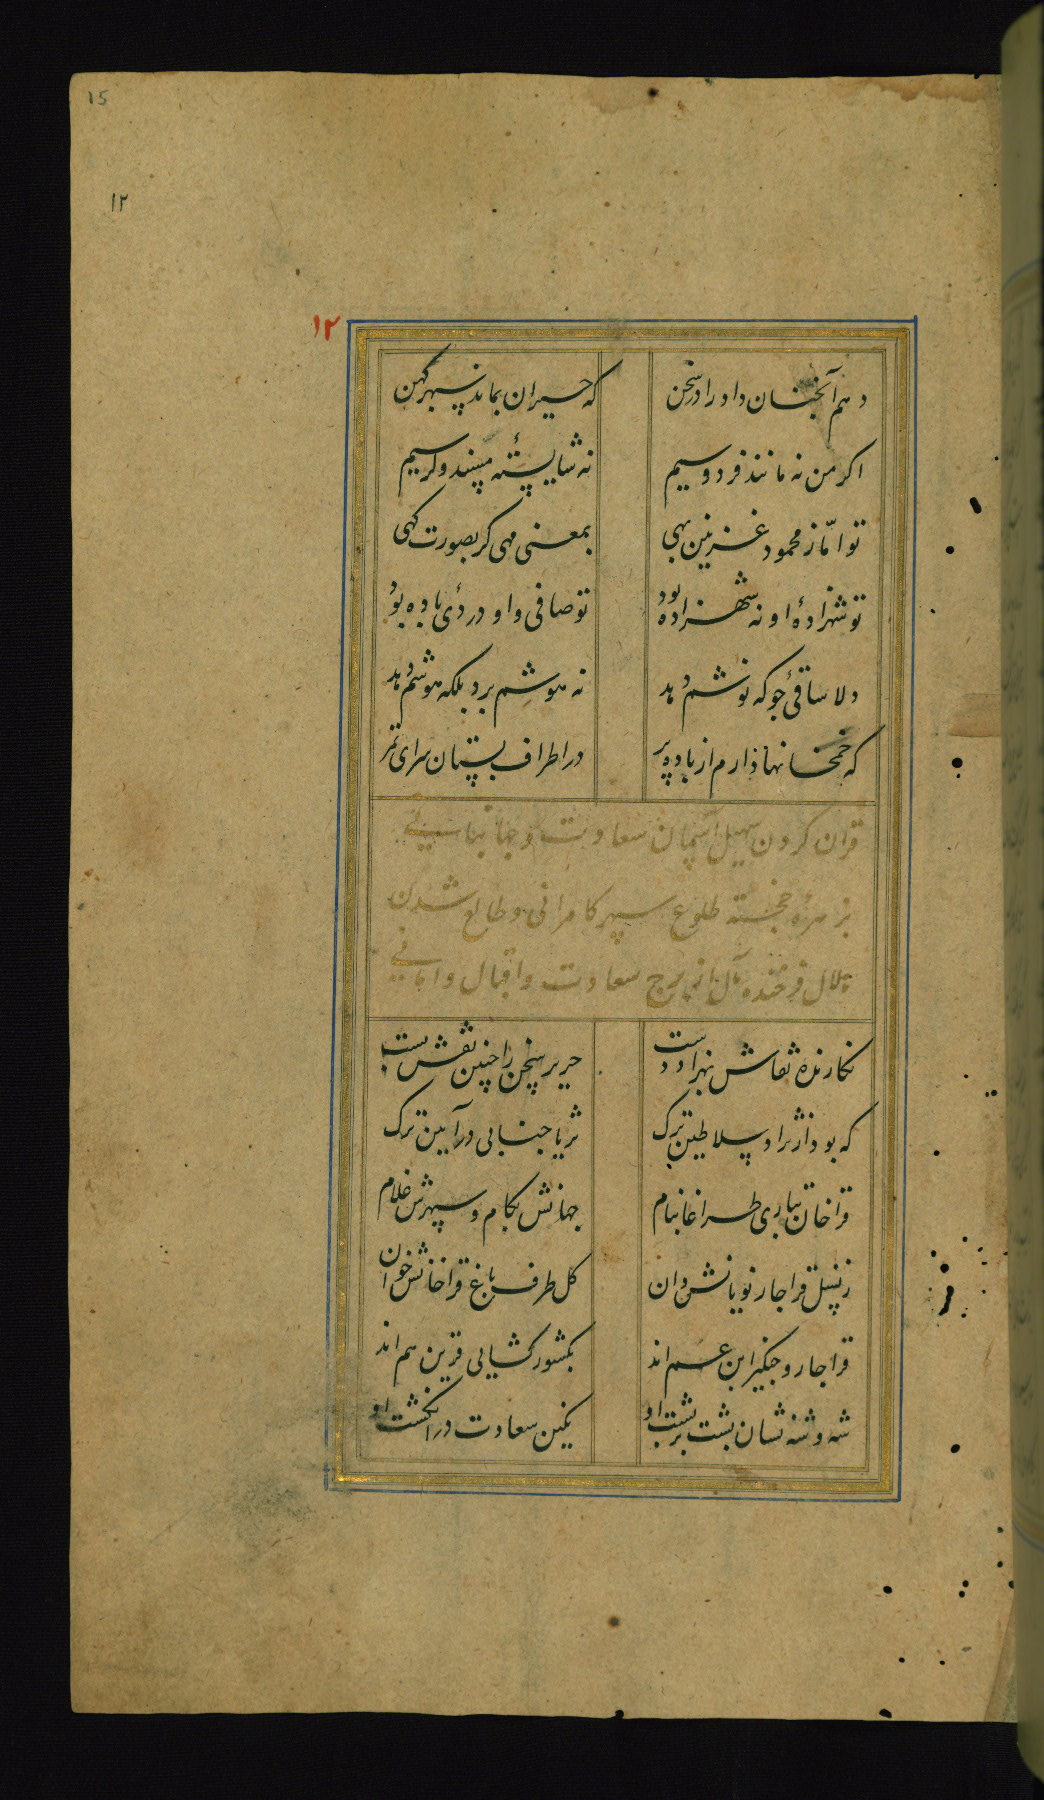 15
۱۲
۱۲
دهم آنچنان داد را در سخن که حیران بماند سپهر کهن
اکر من نه مانند فردوسیم نه شایستهٔ مسند و کرسیم
تو امّا ز محمود غزنین بهی بمعنی مهی کر بصورت کهی
تو شهزادهٔ او نه شهزاده بود تو صافی و او دردئ باده بود
دلا ساقئ جو که نوشم دهد نه هوشم برد بلکه هوشم دهد
که خمخانها دارم از باده پر در اطراف بستان سرای
قران کردن سهیل آسمان سعادت و جهانبانی
بزهرهٔ خجسته طلوع سپهر کامرانی و طالع شدن
هلال فرخنده فال از برج سعادت و اقبال و امانی
نکارنده نقاش بهزاد دست حریر سخن را چنین نقش بست
که بود از نژاد سلاطین ترک ثریا جنابی در آیین ترک
قراخان تباری طراغا بنام جهانش بکام و سپهرش غلام
ز نسل قراجار نویانش دان کل طرف باغ قراخانش خوان
قراجار و چنکیز ابن عم اند بکشور کشایی قرین هم اند
شه و شه نشان پشت بر پشت او نکین سعادت در انکشت او